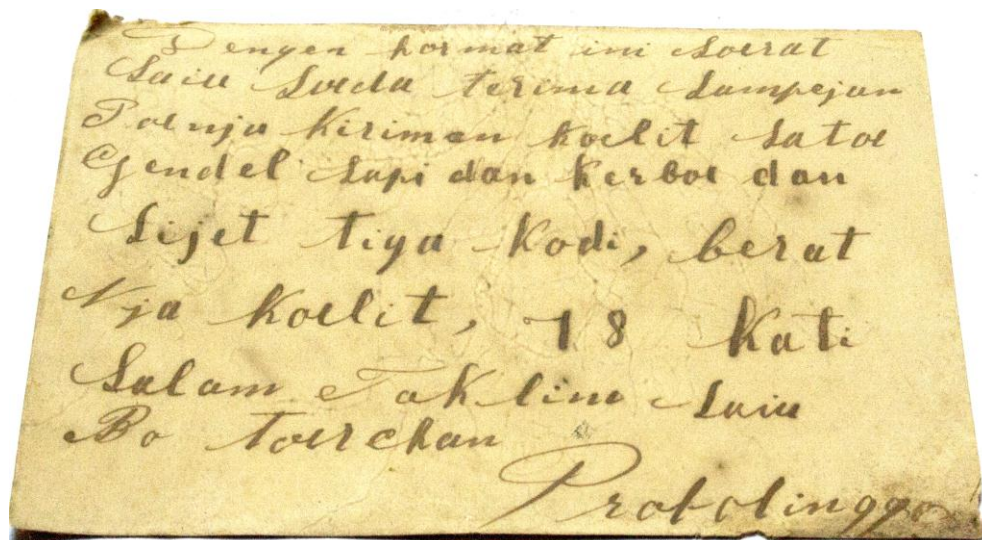 Dengen hormat ini soerat
Saia Suda terima Sampejan
Poenja Kiriman koelit satoe
Gendel sapi dan kerboe dan
Sijet tiga Kodi, berat
Nja koelit, 18 Kati
Salam Taklim Saia
Bo Toerchan
Probolinggo